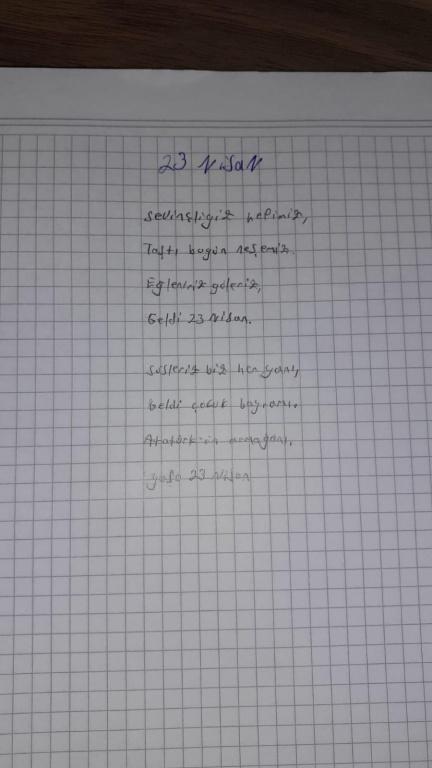 23 Nisan
Sevinçliyiz hepimiz,
Taştı bugün neşemiz.
Eğleniriz güleriz,
Geldi 23 Nisan.
Süsleriz biz her yanı,
Geldi çocuk bayramı.
Atatürk'ün armağanı,
yaşa 23 Nisan